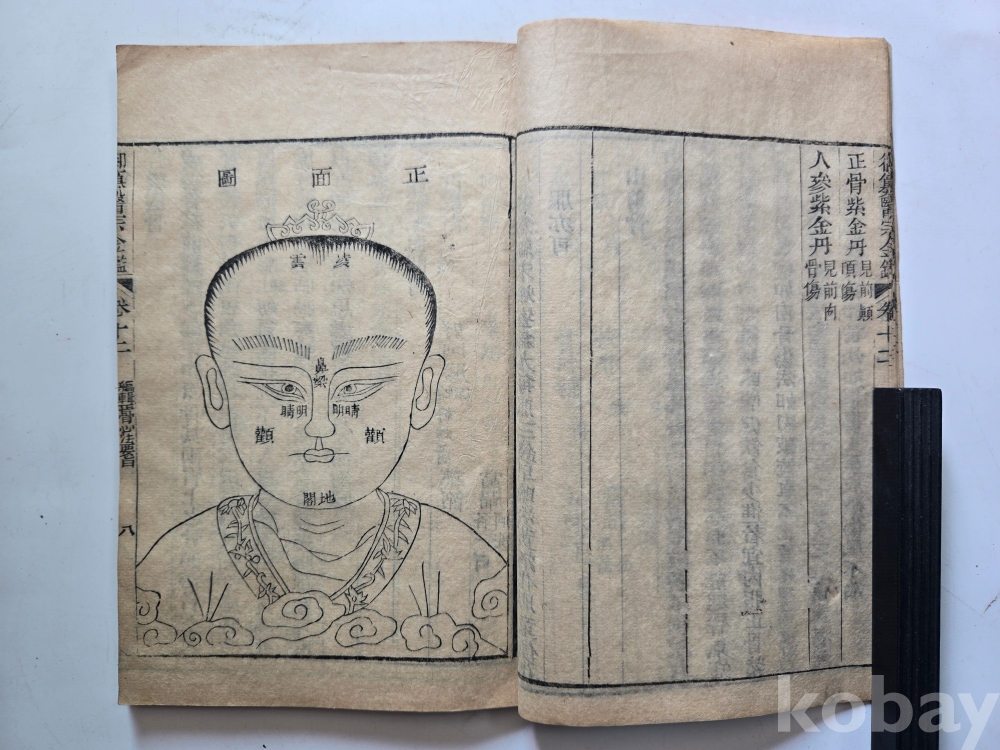 御纂醫宗金鑑 卷十二
正骨紫金丹 見前顛頂傷
人參紫金丹 見前肉骨傷
正面圖
凌雲
鼻梁
睛明
睛明
顴
顴
地閣
御纂醫宗金鑑 卷十二 編輯正骨心法要旨 八
kobay